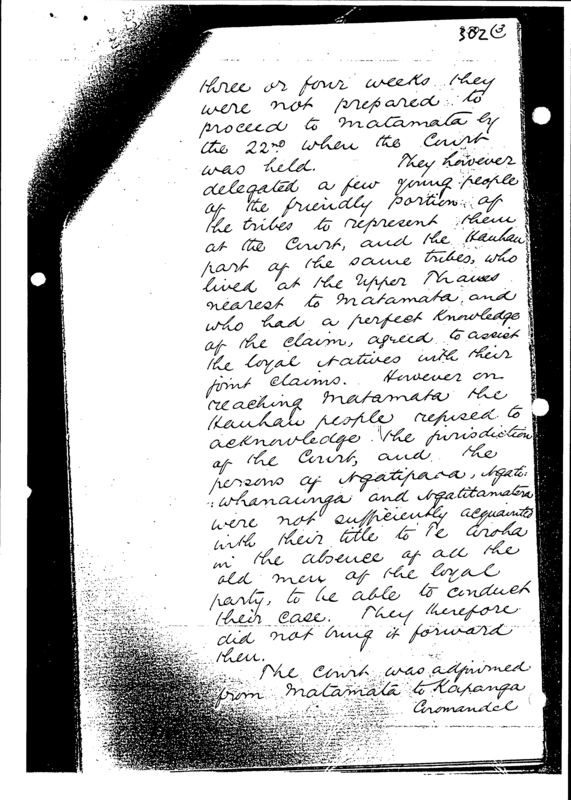 382 (3)
three or four weeks they
were not prepared to
proceed to Matamata by
the 22nd when the Court
was held. They however
delegated a few young people
of the friendly portion of
the tribes to represent them
at the Court, and the Hauhau
part of the same tribes, who
lived at the Upper Thames
nearest to Matamata and
who had a perfect knowledge
of the claim, agreed to assist
the loyal Natives with their
joint claims. However on
reaching Matamata the
Hauhau people refused to
acknowledge the jurisdiction
of the Court, and the
persons of Ngatipaoa, Ngati:
:whanaunga and Ngatitamatera
were not sufficiently acquainted
with their title to Te Aroha
in the absence of all the
old men of the loyal
party, to be able to conduct
their case. They therefore
did not bring it forward
then.
The Court was adjourned
from Matamata to Kapanga
Coromandel